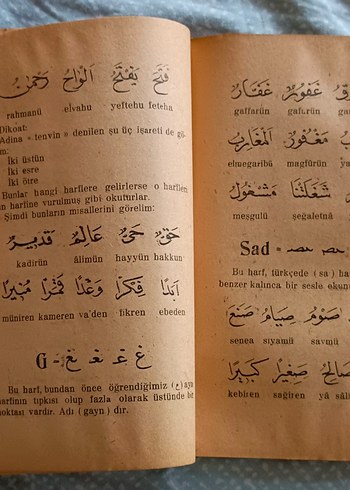 فَتَحَ يَفْتَحُ اَلْوَاحُ رَحْمٰنُ
rahmanü elvahu yeftehu feteha
Dikkat:
Adına « tenvin » denilen şu üç işareti de gö-
İki üstün
İki esre
İki ötre
Bunlar hangi harflere gelirlerse o harflerin
harfine vurulmuş gibi okuturlar.
Şimdi bunların misallerini görelim:
حَقٌّ حَيٌّ عَالِمٌ قَدِيرٌ
kadirün âlimün hayyün hakkun
اَبَدًا فِكْرًا وَعْدًا قَمَرًا مُنِيرًا
müniren kameren va'den fikren ebeden
G = غ ـغـ غـ غ
Bu harf, bundan önce öğrendiğimiz (ع) ayn
harfinin tıpkısı olup fazla olarak üstünde bir
noktası vardır. Adı (gayn) dır.
غَفُورٌ غَفَّارٌ
gaffarün gafurün
مَغْفُورٌ اَلْمَغَارِبُ
elmegaribü magfürün
شَغَلَتْنَا مَشْغُولٌ
meşgulü şegaletnâ
Sad =
Bu harf, türkçede ( sa )
benzer kalınca bir sesle
صَوْمٌ صِيَامٌ صَنَعَ
senea sıyamü savmü
صَالِحُ صَغِيرًا كَبِيرًا
kebiren sağiren yâ